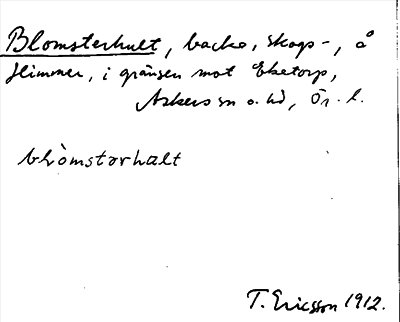 Blomsterhult, backe, skogs-, å
Himmer, i gränsen mot Eketorp,
Askers sn o. hd, Ör. l.
blòmstərhalt
T. Ericsson 1912.